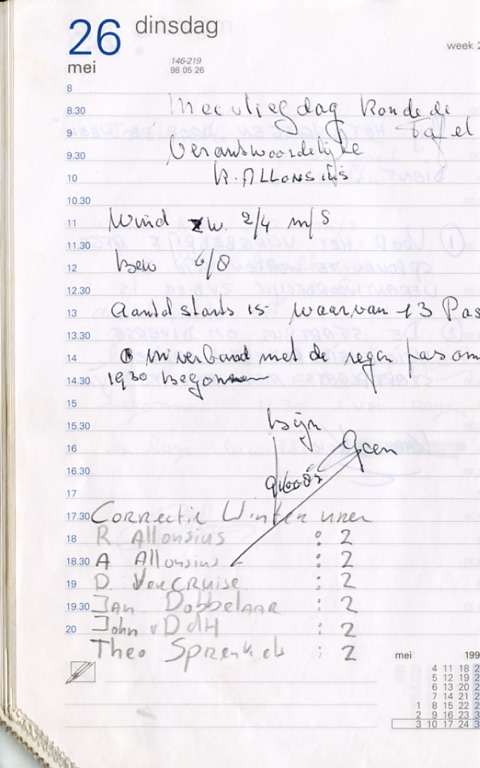 26 dinsdag
week 2
mei
146-219
98 05 26
8
8.30 Meevliegdag Ronde de
9 Tafel
9.30 Verantwoordelijke
10 R. ALLONSIUS
10.30
11 Wind zw. 2/4 m/s
11.30
12 Bew 6/8
12.30
13 Aantal starts 15 waarvan 13 Pas
13.30
14 in verband met de regen pas om
14.30 1930 begonnen
15
15.30 Bijz
16 Geen
16.30
17
17.30 Correctie Winter uren
18 R Allonsius : 2
18.30 A Allonsius : 2
19 D VerCruise : 2
19.30 Jan Dobbelaar : 2
20 John vDdH : 2
Theo Sprenkels : 2
mei 199
4 11 18 2
5 12 19 2
6 13 20 2
7 14 21 2
1 8 15 22 2
2 9 16 23 3
3 10 17 24 3